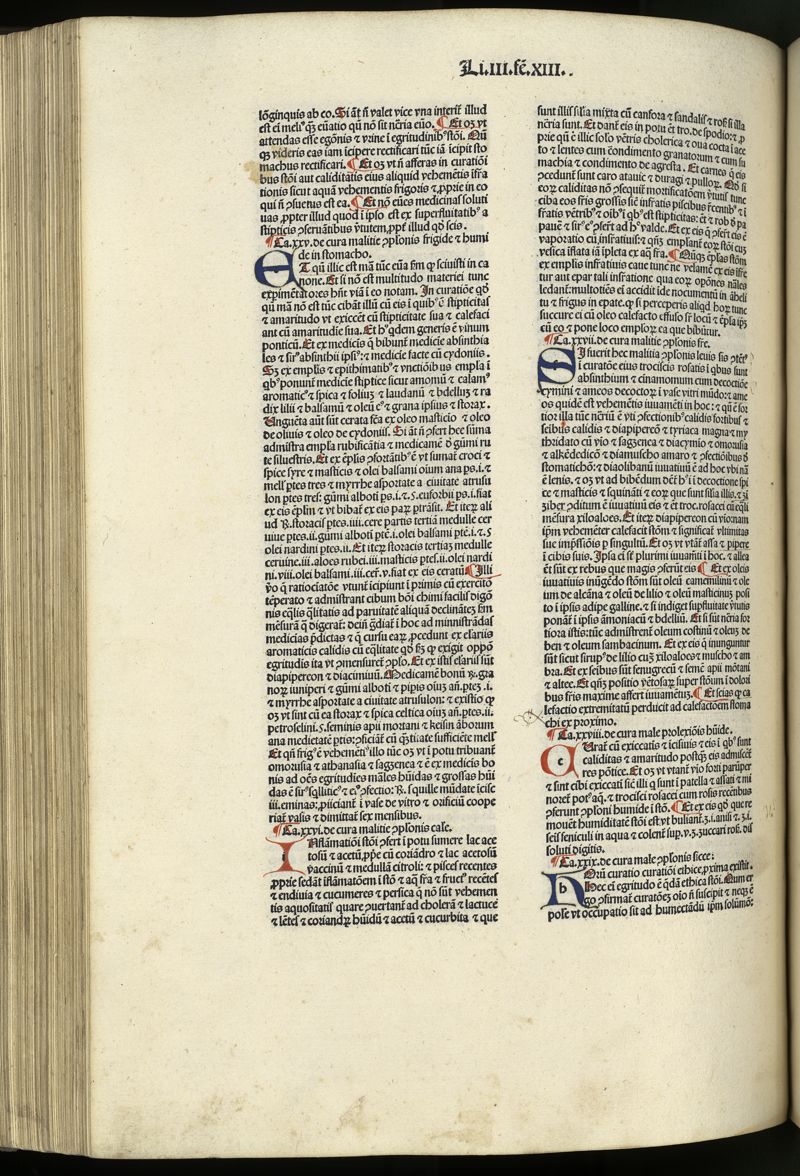 Li.III.fē.XIII.
lōginquis ab eo. Si āt ñ valet vice vna interit̄ illud
attendas esse egōnis ⁊ vrine ī egritudinibꝰ stōi. Nū
qꝫ videris eas iam īcipere rectificari tūc iā īcipit sto
machus rectificari. ¶ Et oꝫ vt ñ afferas in curatiōi
bus stōi aut caliditatis eius aliquid vehemētis īfra
tionis sicut aquā vehementis frigoris ⁊ ꝓprie in eo
qui ñ ꝓsuetus est ea. ¶ Et nō eūes medicinas soluti
uas ꝓpter illud quod ī ipso est ex superfluitatibꝰ a
¶ Ca.xxv. de cura malitie ꝓlonis frigide ⁊ humi
de in stomacho.
ET qn̄ illic est mā tūc cūa fm̄ ꝙ sciuisti in ca
none. Et si nō est multitudo materiei tunc
expimētatores hn̄t viā ī eo notam. In curatiōe qd̄
⁊ amaritudo vt exiccēt cū stipticitate sua ⁊ calefaci
ant cū amaritudie sua. Et hꝰ qdem generis ē vinum
ponticū. Et ex medicis q̄ bibunt̄ medicie absinthia
les ⁊ sirꝰ absinthii ipsiꝰ: ⁊ medicie facte cū cydoniis.
Sꝫ ex emplis ⁊ epithimatibꝰ ⁊ vnctiōibus empla ī
qbꝰ ponunt̄ medicie stiptice sicut amomū ⁊ calamꝰ
aromaticꝰ ⁊ spica ⁊ foliuꝫ ⁊ laudanū ⁊ bdelluꝫ ⁊ ra
dix lilii ⁊ balsamū ⁊ oleū eꝰ ⁊ grana ipsius ⁊ storax.
Vnguēta aūt sūt cerata fēa ex oleo masticis ⁊ oleo
de oliuis ⁊ oleo de cydoniis. Si āt ñ ꝓfert hec sūma
admistra empla rubificātia ⁊ medicamē ō gūmi ru
te siluestris. Et ex ēplis ꝓfortātibꝰ ē vt sumat̄ croci ⁊
spice syre ⁊ masticis ⁊ olei balsami oium ana ps.i. ⁊
mell̓ ptes tres ⁊ myrrhe asportate a ciuitate atrusu
lon ptes tres: gūmi alboti ps.i.⁊.s. euforbii ps.i. fiat
ex eis ēplm̄ ⁊ vt bibat̄ ex eis paꝝ ptrāsit. Et iteꝝ ali
ud ℞. storacis ptes.iiii. cere partis tertiā medulle cer
uiue ptes.ii. gūmi alboti ptē.i. olei balsami ptē.i.⁊.s
olei nardini ptes.ii. Et iteꝝ storacis tertiaꝫ medulle
ceruine.iii. aloes rubei.iii. masticis ptes.ii. olei nardi
ni.viii. olei balsami.iii. cer̄.v. fiat ex eis ceratū ¶ Illi
vō q̄ ratiocīatōe vtunt̄ īcipiunt ī primis cū exercito
tēperato ⁊ admistrant cibum bōi chimi facilis digō
nis eqlis q̄litatis ad paruitatē aliquā declināteꝫ fm̄
mēsurā q̄ digerat̄: dein̄ ḡdiat̄ ī hoc ad minnistrādas
medicias p̄dictas ⁊ q̄ cursu eaꝝ ꝓcedunt ex elariis
aromaticis calidis cū eq̄litate qd̄ fꝫ ꝙ exigit oppō
egritudis ita vt ꝓmensuret̄ ꝓpso. Et ex istis elariis sūt
diapipereon ⁊ diaciminū. Medicamē bonū ℞. gra
noꝝ iuniperi ⁊ gūmi alboti ⁊ pipis oiuꝫ añ. ptes.i.
⁊ myrrhe asportate a ciuitate atrusulon: ⁊ existio ꝙ
oꝫ vt sint cū ea storax ⁊ spica celtica oiuꝫ añ. ptes.ii.
petroselini.s. seminis apii mōtani ⁊ keisin āborum
ana medietatē ptis: ꝓficiāt̄ cū q̄titate sufficiēte mell̓
Et qn̄ frigꝰ ē vehemētiꝰ illo tūc oꝫ vt ī potu tribuant̄
omorusia ⁊ athanasia ⁊ sagzenea ⁊ ē ex medicis bo
nis ad oēs egritudies mālēs hūidas ⁊ grossas hūi
.iii. eminas: ꝓiiciant̄ ī vase de vitro ⁊ orificiū coope
riat̄ vasis ⁊ dimittat̄ sex mensibus.
¶ Ca.xxvi. de cura malitie ꝓlonis cale.
INflamatiōi stōi ꝓfert ī potu sumere lac ace
tosū ⁊ acetū, ꝓp̄e cū coriādro ⁊ lac acetosū
vaccinū ⁊ medullā citroli: ⁊ pisces recentes
ꝓprie sedāt īflāmatōem ī stō ⁊ aq̄ fra ⁊ frucꝰ recētes
⁊ endiuia ⁊ cucumeres ⁊ persica q̄ nō sūt vehemen
tis aquositatis quare ꝓuertant̄ ad cholerā ⁊ lactuce
⁊ lētes ⁊ coriandꝝ hūidū ⁊ acetū ⁊ cucurbita ⁊ que
sunt illis silia mixta cū canfora ⁊ sandalis ⁊ rosis si illa
nēria sunt. Et dant̄ eis in potu ēt tro. de spodio: ⁊ ꝓ
prie qn̄ ē illic solō vētris cholerica ⁊ oua cocta ī ace
to ⁊ lentes cum cōndimento granatorum ⁊ cum su
machia ⁊ condimento de agresta. Et carnes q̄ eis
eoꝝ caliditas nō ꝓsequit̄ mortificatōem v̓tutis tunc
ciba eos fris grossis sic̄ infratis piscibus r̄centibꝰ ⁊ ī
vaporatio cū infratiuis: ⁊ qn̄qꝫ emplant̄ eoꝝ stōi cuꝫ
vesica īflata iā īpleta ex aq̄ fra. ¶ Nūqꝫ ēplas stōm
ex emplis infratiuis caue tunc ne velamē ex eis īfre
tur aut epar tali infratione qua eoꝝ opōnes nāles
ledant̄: multotiēs eī accidit ide nocumentū in āheli
tu ⁊ frigus in epate. ꝙ si perceperis aliqd hoꝝ tunc
succure ei cū oleo calefacto effuso sr̄ locū ⁊ ēpla ipꝫ
cū eo ⁊ pone loco emploꝝ ea que bibūtur.
¶ Ca.xxvii. de cura malitie ꝓlonis fre.
SI fuerit hec malitia ꝓlonis leuis sis ꝓtētꝰ
ī curatōe eius trociscis rosatis ī qbus sunt
absinthium ⁊ cinamomum cum decoctiōe
cymini ⁊ ameos decoctoꝝ ī vase vitri mūdo: ⁊ ame
os quidē est vehemētis iuuamēti in hoc: ⁊ qn̄ ē for
tior illa tūc nēriū ē vti ꝓfectionibꝰ calidis fortibus ⁊
seibilis calidis ⁊ diapipereō ⁊ tyriaca magna ⁊ my
thridato cū vio ⁊ sagzenea ⁊ diacymio ⁊ omorusia
⁊ alkēdedicō ⁊ diamuscho amaro ⁊ ꝓfectiōibus ō
stomatichō: ⁊ diaolibanū iuuatiuū ē ad hoc vbi nā
ē lenis. ⁊ oꝫ vt ad bibēdum dēt̄ hꝰ ī ī decoctione spi
ce ⁊ masticis ⁊ squināti ⁊ eoꝝ que sunt silia illis. ⁊ ꝫi
ꝫiber ꝯditum ē iuuatiuū eis ⁊ ēt troc. rosacei cū eq̄li
mēsura xiloaloes. Et iteꝝ diapipereon cū vio: nam
ipm̄ vehemēter calefacit stōm ⁊ significat̄ vltimitas
sue impssiōis p singultū. Et oꝫ vt vtant̄ assa ⁊ pipere
ī cibis suis. Ipsa eī st̄ plurimi iuuamīti ī hoc. ⁊ allea
ēt sūt ex rebus que magis ꝓferūt eis ¶ Et ex oleis
iuuatiuis inūgēdo stōm sūt oleū camemilinū ⁊ ole
um de alcāna ⁊ oleū de lilio ⁊ oleū masticinuꝫ posi
to ī ipsis adipe galline. ⁊ si indiget supfluitate v̓tutis
ponāt̄ ī ipsis āmoniacū ⁊ bdelliū. Et si sūt nēria for
tiora istis: tūc admistrent̄ oleum costinū ⁊ oleuꝫ de
ben ⁊ oleum sambacinum. Et ex eis q̄ inunguntur
sūt sicut sirupꝰ de lilio cuꝫ xiloaloes ⁊ muscho ⁊ am
bra. Et ex seibus sūt fenugrecū ⁊ semē apii mōtani
⁊ altee. Et qn̄ꝫ positio vētosaꝝ super stōum ī dolori
bus fris maxime affert iuuamētuꝫ. ¶ Et scias ꝙ ca
lefactio extremitatū perducit ad calefactōem stoma
chi ex proximo.
¶ Ca.xxviii. de cura male ꝓlexiōis hūide.
CUrat̄ cū exiccatis ⁊ īcisiuis ⁊ eis ī qbꝰ sunt
caliditas ⁊ amaritudo postqꝫ eis admiscēt̄
res pōtice. Et oꝫ vt vtant̄ vio forti parūper
⁊ sint cibi exiccaii sic̄ illi q sunt ī patella ⁊ assati ⁊ mi
noret̄ potꝰ aq̄. ⁊ trocisci rosacei cum rosis recētibus
ꝓferunt ꝓlōni humide ī stō. ¶ Et ex eis qd̄ que re
mouēt humiditatē stōi est vt buliant̄.ʒ.i. anisi ⁊.ʒ.i.
seis feniculi in aqua ⁊ colent̄ sup.v.ʒ. zuccari ros. dis
soluti digitis.
¶ Ca.xxix. de cura male ꝓlonis sicce:
HOrū curatio curatiōi ethice, ꝓxima existit.
Hec eī egritudo ē q̄dā ethica stōi. Qum er
go ꝓfirmat̄ curatōeꝫ oīo ñ suscipit ⁊ neqꝫ ē
pole vt occupatio sit ad humectādū ipm̄ solūmō: